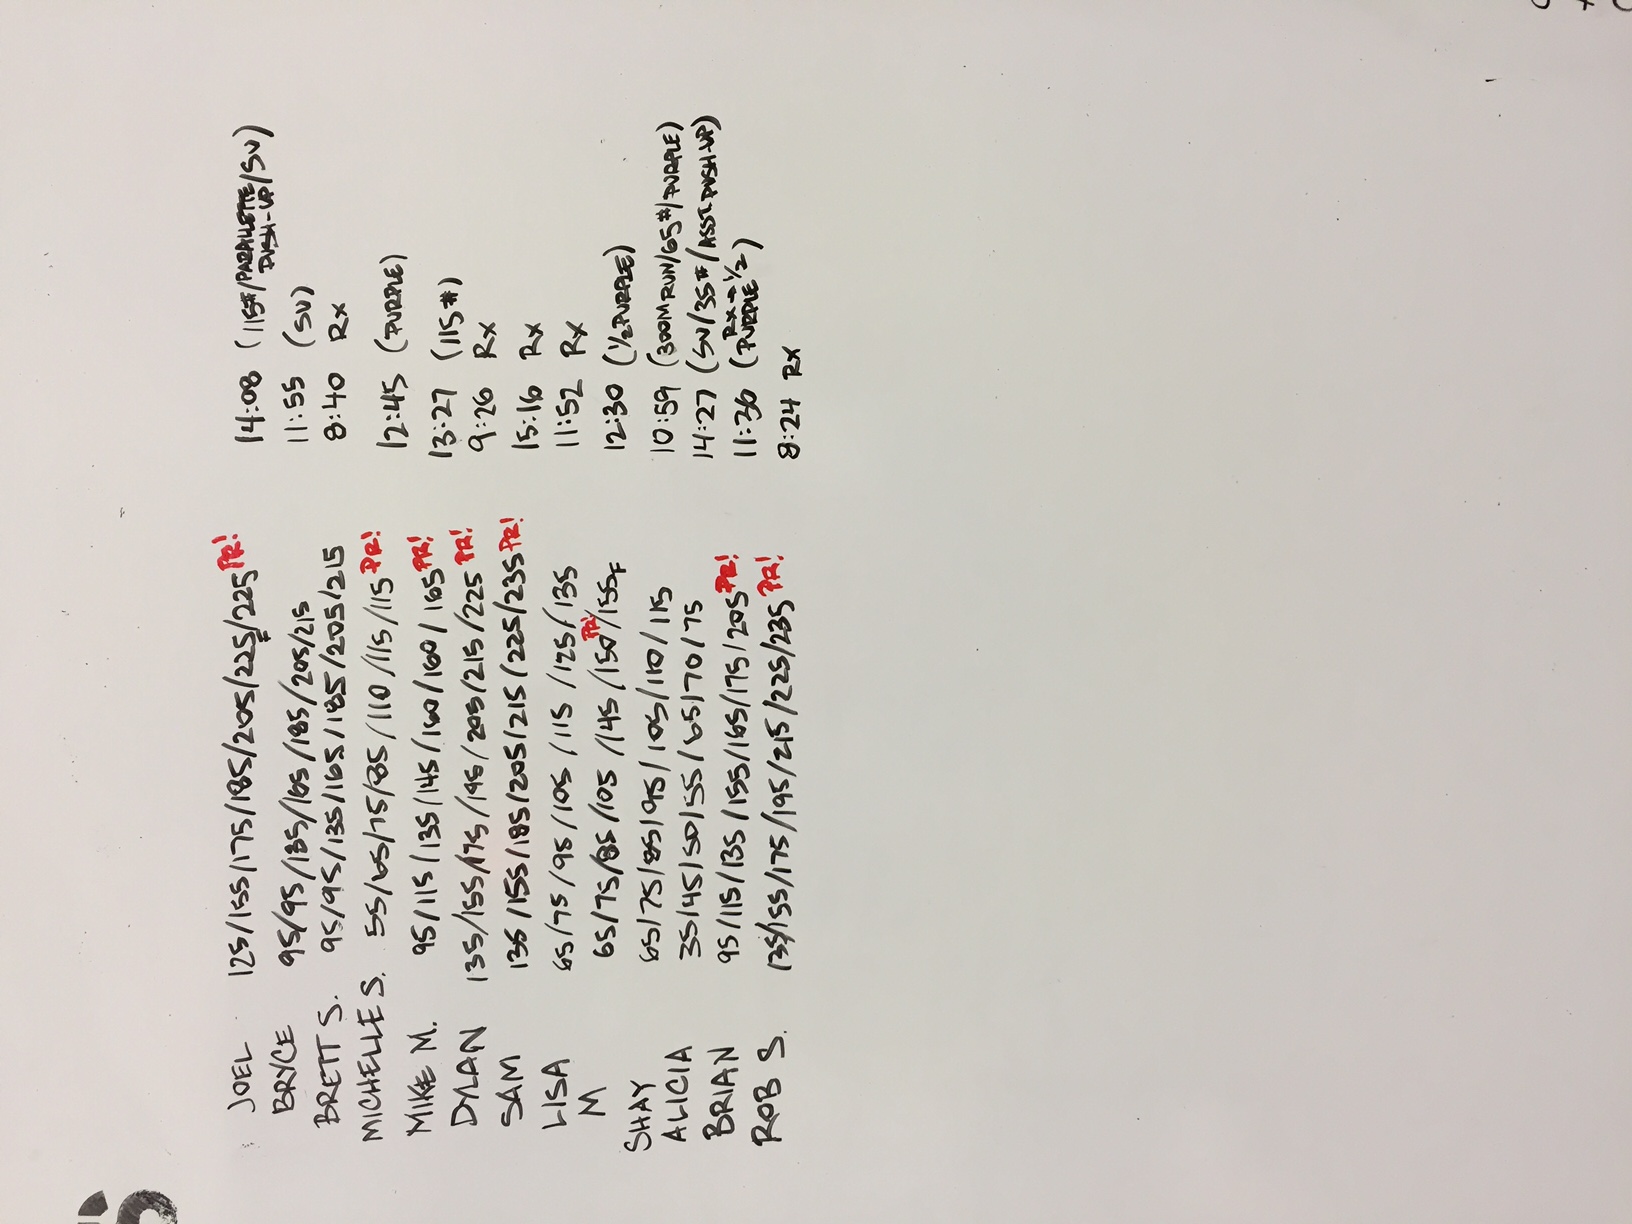 JOEL 125/155/175/185/205/225/225 PR! 14:08 (115#/PARALLETTE PUSH-UP/SU)
BRYCE 95/95/135/165/185/205/215 11:55 (SU)
BRETT S. 95/95/135/165/185/205/215 8:40 Rx
MICHELLE S. 55/65/75/85/110/115/115 PR! 12:45 (PURPLE)
MIKE M. 95/115/135/145/160/160/165 PR! 13:27 (115#)
DYLAN 135/155/175/195/205/215/225 PR! 9:26 Rx
SAM 135/155/185/205/215/225/235 PR! 15:16 Rx
LISA 65/75/95/105/115/125/135 11:52 Rx
M 65/75/85/105/145/150 PR!/155F 12:30 (1/2 PURPLE)
SHAY 65/75/85/95/105/110/115 10:59 (300M RUN/65#/PURPLE)
ALICIA 35/45/50/55/65/70/75 14:27 (SU/35#/ASST. PUSH-UP)
BRIAN 95/115/135/155/165/175/205 PR! 11:36 (Rx→1/2 PURPLE)
ROB S. 135/155/175/195/215/225/235 PR! 8:24 Rx